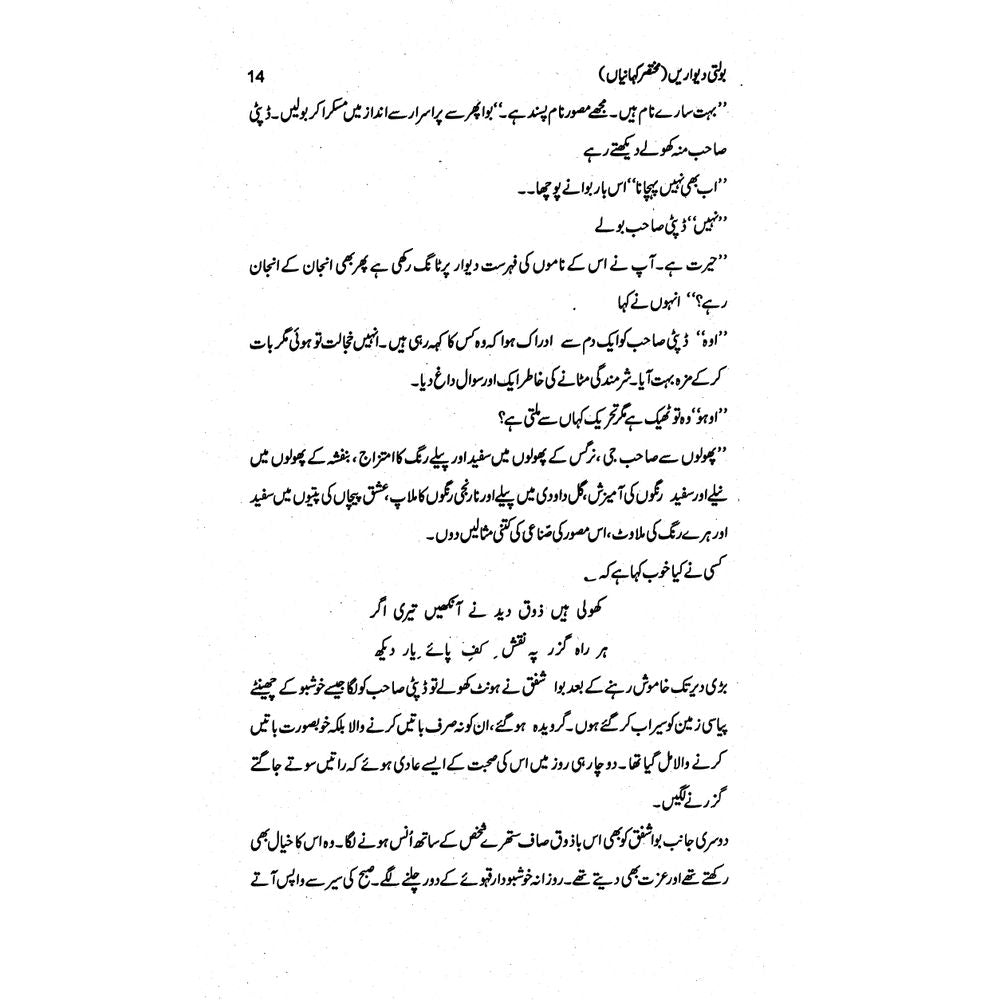 بولتی دیواریں (مختصر کہانیاں) 14
’’بہت سارے نام ہیں۔ مجھے مصور نام پسند ہے۔‘‘ بوا پھر سے پراسرار سے انداز میں مسکرا کر بولیں۔ ڈپٹی
صاحب منہ کھولے دیکھتے رہے
’’اب بھی نہیں پہچانا‘‘ اس بار بوا نے پوچھا۔۔
’’نہیں‘‘ ڈپٹی صاحب بولے
’’حیرت ہے۔ آپ نے اس کے ناموں کی فہرست دیوار پر ٹانگ رکھی ہے پھر بھی انجان کے انجان
رہے؟‘‘ انہوں نے کہا
’’اوہ‘‘ ڈپٹی صاحب کو ایک دم سے ادراک ہوا کہ وہ کس کا کہہ رہی ہیں۔ انہیں خجالت تو ہوئی مگر بات
کر کے مزہ بہت آیا۔ شرمندگی مٹانے کی خاطر ایک اور سوال داغ دیا۔
’’اوہو‘‘ وہ تو ٹھیک ہے مگر تحریک کہاں سے ملتی ہے؟
’’پھولوں سے صاحب جی، نرگس کے پھولوں میں سفید اور پیلے رنگ کا امتزاج، بنفشہ کے پھولوں میں
نیلے اور سفید رنگوں کی آمیزش، گل داودی میں پیلے اور نارنجی رنگوں کا ملاپ، عشق پیچاں کی پتیوں میں سفید
اور ہرے رنگ کی ملاوٹ، اس مصور کی صّناعی کی کتنی مثالیں دوں۔
کسی نے کیا خوب کہا ہے کہ ؂
کھولی ہیں ذوق دید نے آنکھیں تیری اگر
ہر راہ گزر پہ نقش ِ کفِ پائے یار دیکھ
بڑی دیر تک خاموش رہنے کے بعد بوا شفق نے ہونٹ کھولے تو ڈپٹی صاحب کو لگا جیسے خوشبو کے چھینٹے
پیاسی زمین کو سیراب کر گئے ہوں۔ گرویدہ ہو گئے، ان کو نہ صرف باتیں کرنے والا بلکہ خوبصورت باتیں
کرنے والا مل گیا تھا۔ دو چار ہی روز میں اس کی صحبت کے ایسے عادی ہوئے کہ راتیں سوتے جاگتے
گزرنے لگیں۔
دوسری جانب بوا شفق کو بھی اس باذوق صاف ستھرے شخص کے ساتھ اُنس ہونے لگا۔ وہ اس کا خیال بھی
رکھتے تھے اور عزت بھی دیتے تھے۔ روزانہ خوشبودار قہوائے کے دور چلنے لگے۔ صبح کی سیر سے واپس آتے